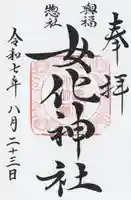 奉拝
興福
惣社
女化神社
令和七年八月二十三日